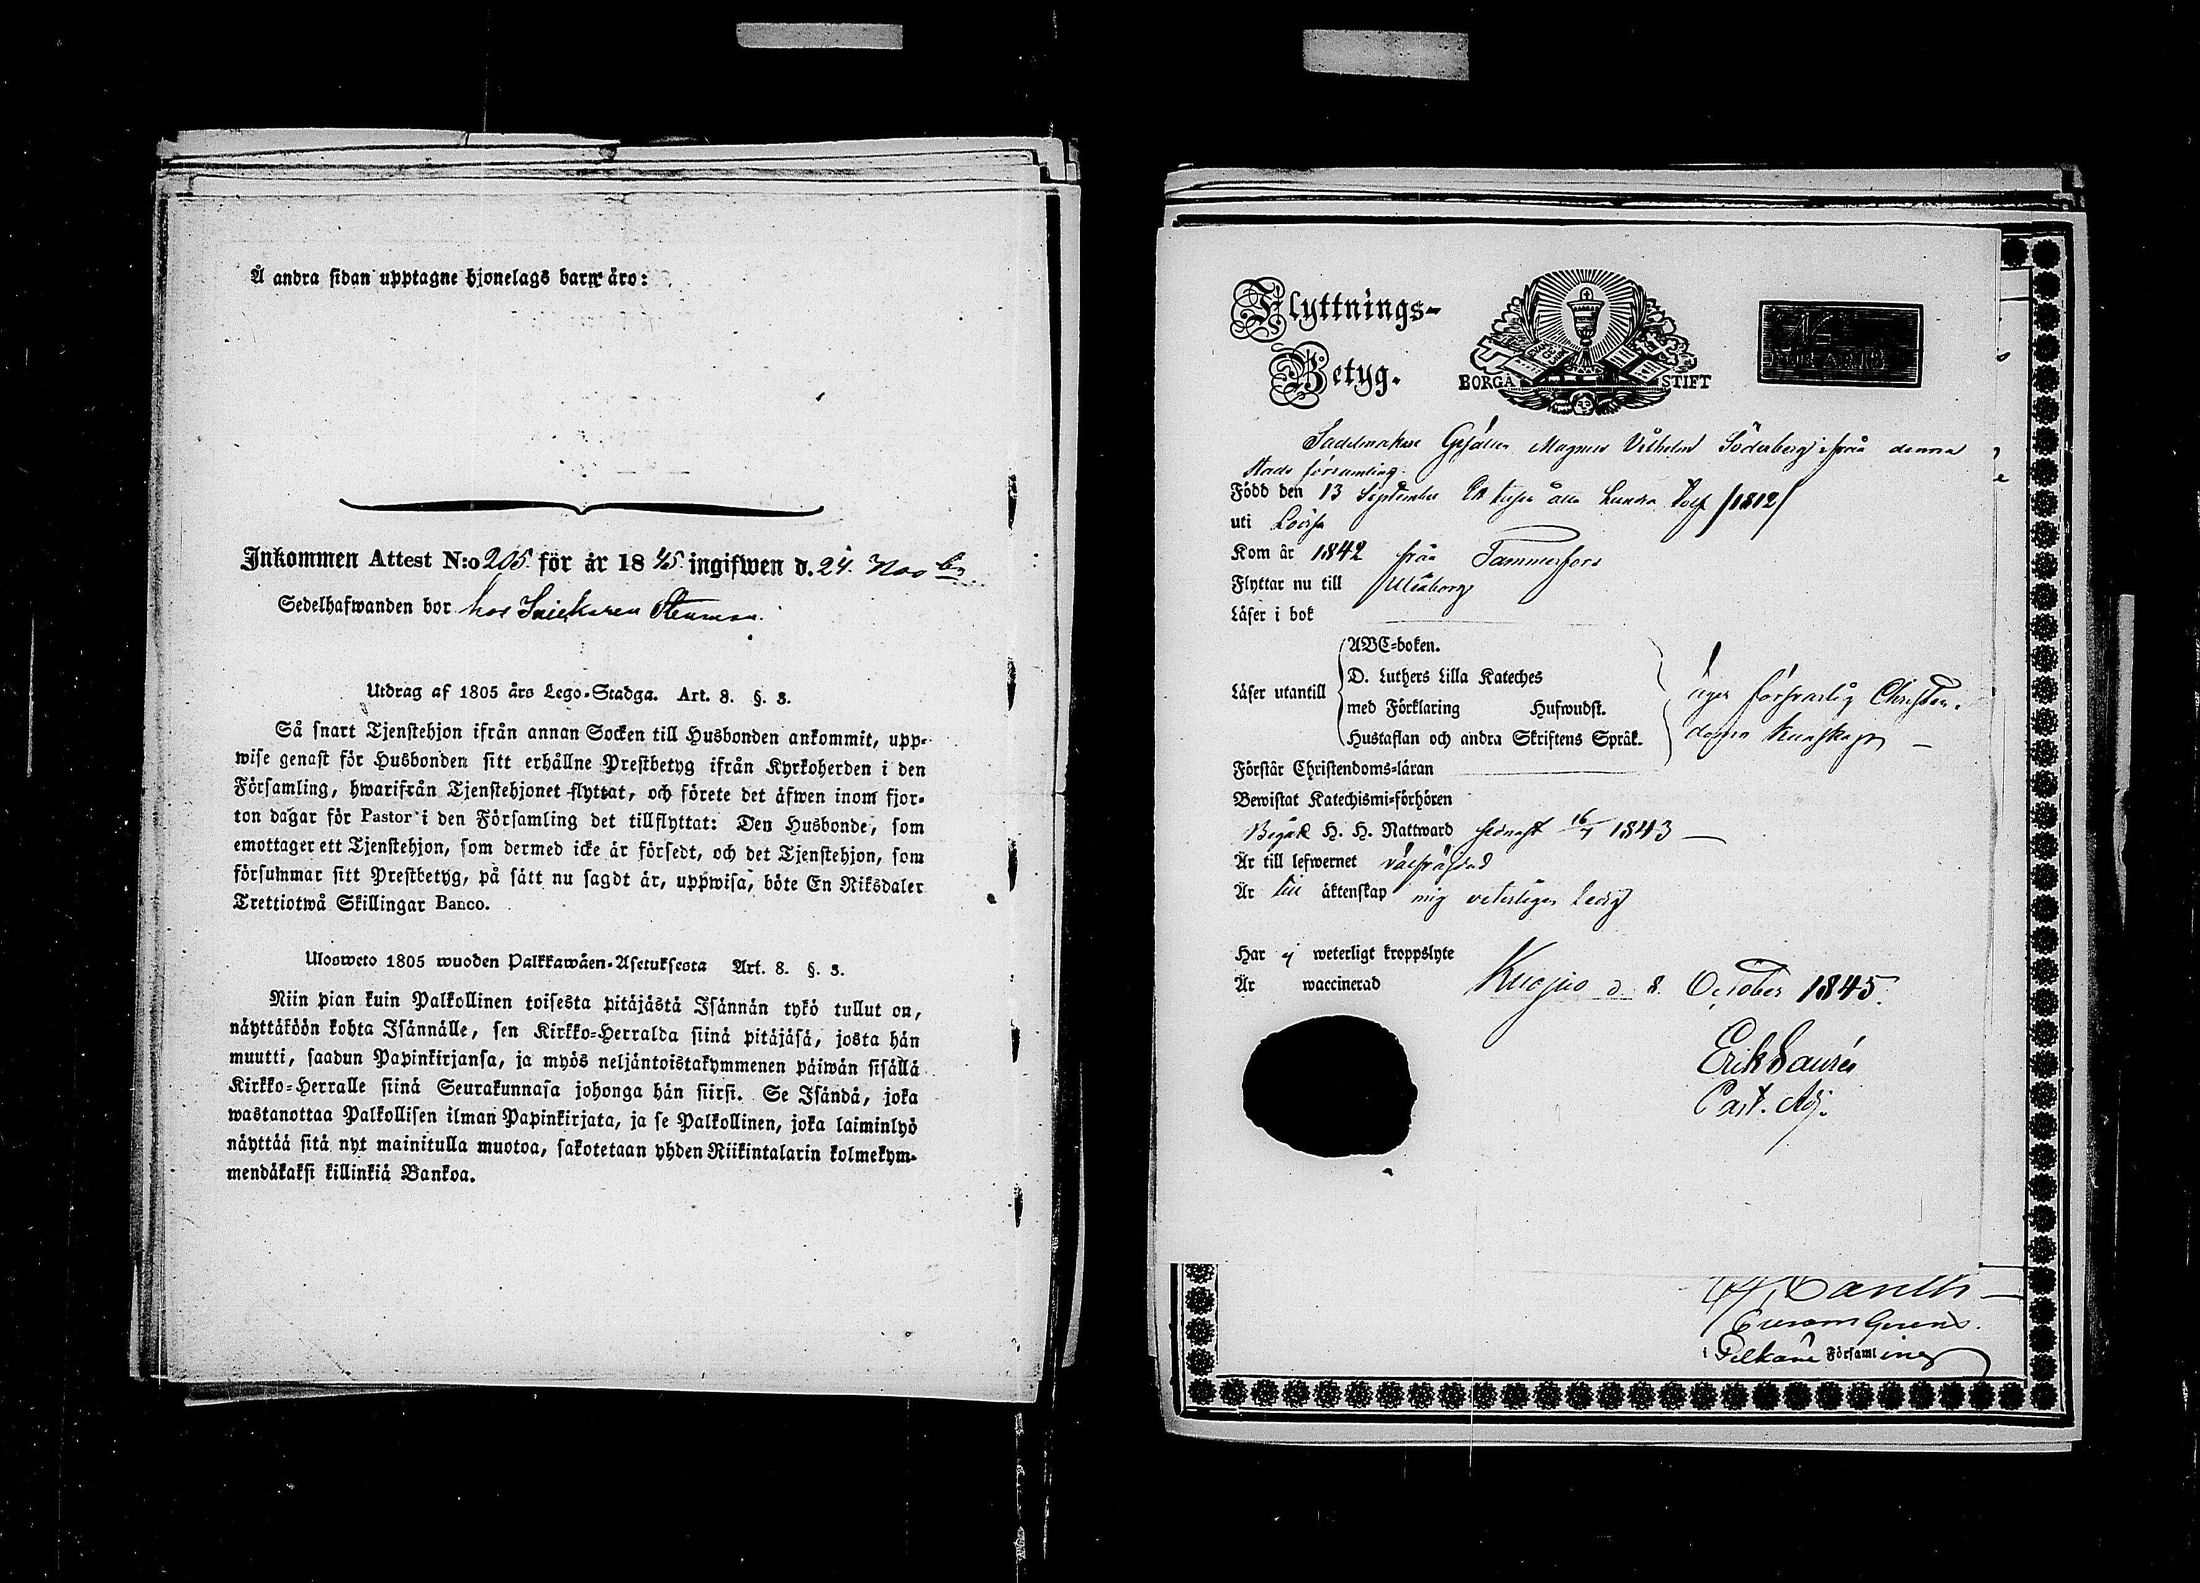 Å andra sidan upptagne hjonelags barn äro:
Inkommen Attest N:o 205. för år 1845. ingifwen d. 24. Novbr
Sedelhafwanden bor hos Snickaren Stenman.
Utdrag af 1805 års Lego-Stadga. Art. 8. §. 3.
Så snart Tjenstehjon ifrån annan Socken till Husbonden ankommit, upp-
wise genast för Husbonden sitt erhållne Prestbetyg ifrån Kyrkoherden i den
Församling, hwarifrån Tjenstehjonet flyttat, och förete det äfwen inom fjor-
ton dagar för Pastor i den Församling det tillflyttat: Den Husbonde, som
emottager ett Tjenstehjon, som dermed icke är försedt, och det Tjenstehjon, som
försummar sitt Prestbetyg, på sätt nu sagdt är, uppwisa, böte En Riksdaler
Trettiotwå Skillingar Banco.
Ulosweto 1805 wuoden Palkkawäen-Asetuksesta Art. 8. §. 3.
Niin pian kuin Palkollinen toisesta pitäjästä Isännän tykö tullut on,
näyttäköön kohta Isännälle, sen Kirkko-Herralda siinä pitäjäsä, josta hän
muutti, saadun Papinkirjansa, ja myös neljäntoistakymmenen päiwän sisällä
Kirkko-Herralle siinä Seurakunnasa johonga hän siirsi. Se Isändä, joka
wastanottaa Palkollisen ilman Papinkirjata, ja se Palkollinen, joka laiminlyö
näyttää sitä nyt mainitulla muotoa, sakotetaan yhden Riikintalarin kolmekym-
mendäkaksi killinkiä Bankoa.
Flyttnings-
Betyg.
BORGÅ STIFT
Sadelmakare Gesällen Magnus Vilhelm Söderberg ifrån denna
stads församling.
Född den 13 September Ett tusen åtta hundra tolf /1812/
uti Lovisa
Kom år 1842 från Tammerfors
Flyttar nu till Uleåborg
Läser i bok
Läser utantill
ABC-boken.
D. Luthers Lilla Kateches
med Förklaring Hufwudst.
Hustaflan och andra Skriftens Språk.
äger försvarlig Christen-
doms kunskap
Förstår Christendoms-läran
Bewistat Katechismi-förhören
Begått H. H. Nattward sednast 16/7 1843
Är till lefwernet välfräjdad
Är till äktenskap mig veterligen ledig
Har ej weterligt kroppslyte
Är waccinerad
Kuopio d. 8. October 1845.
Erik Laurén
Past. Adj.
i Pelkäne Församling